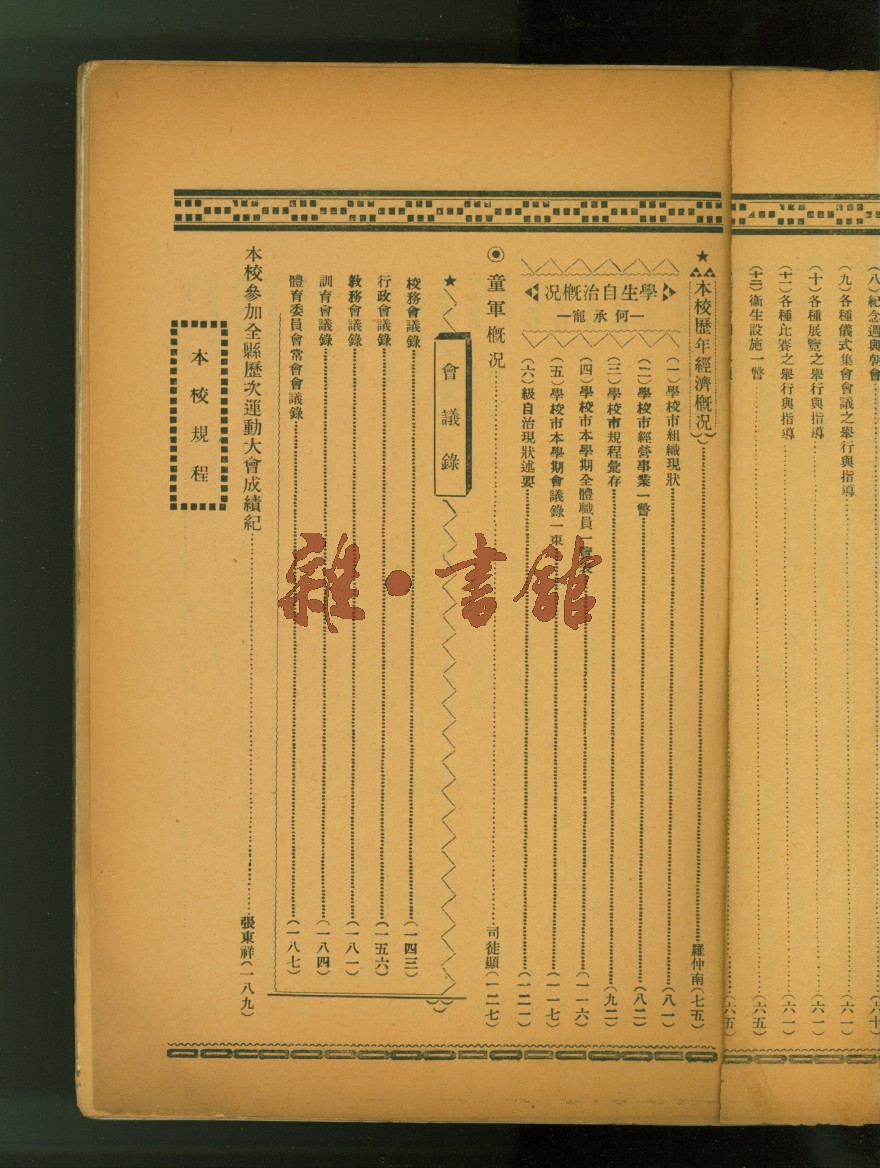 (八)紀念週與朝會(六十)
(九)各種儀式集會會議之舉行與指導(六一)
(十)各種展覽之舉行與指導(六一)
(十一)各種比賽之舉行與指導(六一)
(十二)衞生設施一瞥(六五)
(六五)
★本校歷年經濟概况 羅仲南(七五)
學生自治概况
—何承寵—
(一)學校市組織現狀(八一)
(二)學校市經營事業一瞥(八二)
(三)學校市規程彙存(九二)
(四)學校市本學期全體職員一覽表(一一六)
(五)學校市本學期會議錄一束(一一七)
(六)級自治現狀述要(一二一)
童軍概况 司徒顯(一二七)
★會議錄
校務會議錄(一四三)
行政會議錄(一五六)
教務會議錄(一八一)
訓育會議錄(一八四)
體育委員會常會會議錄(一八七)
本校參加全縣歷次運動大會成績紀 張東祥(一八九)
本校規程
雜·書館